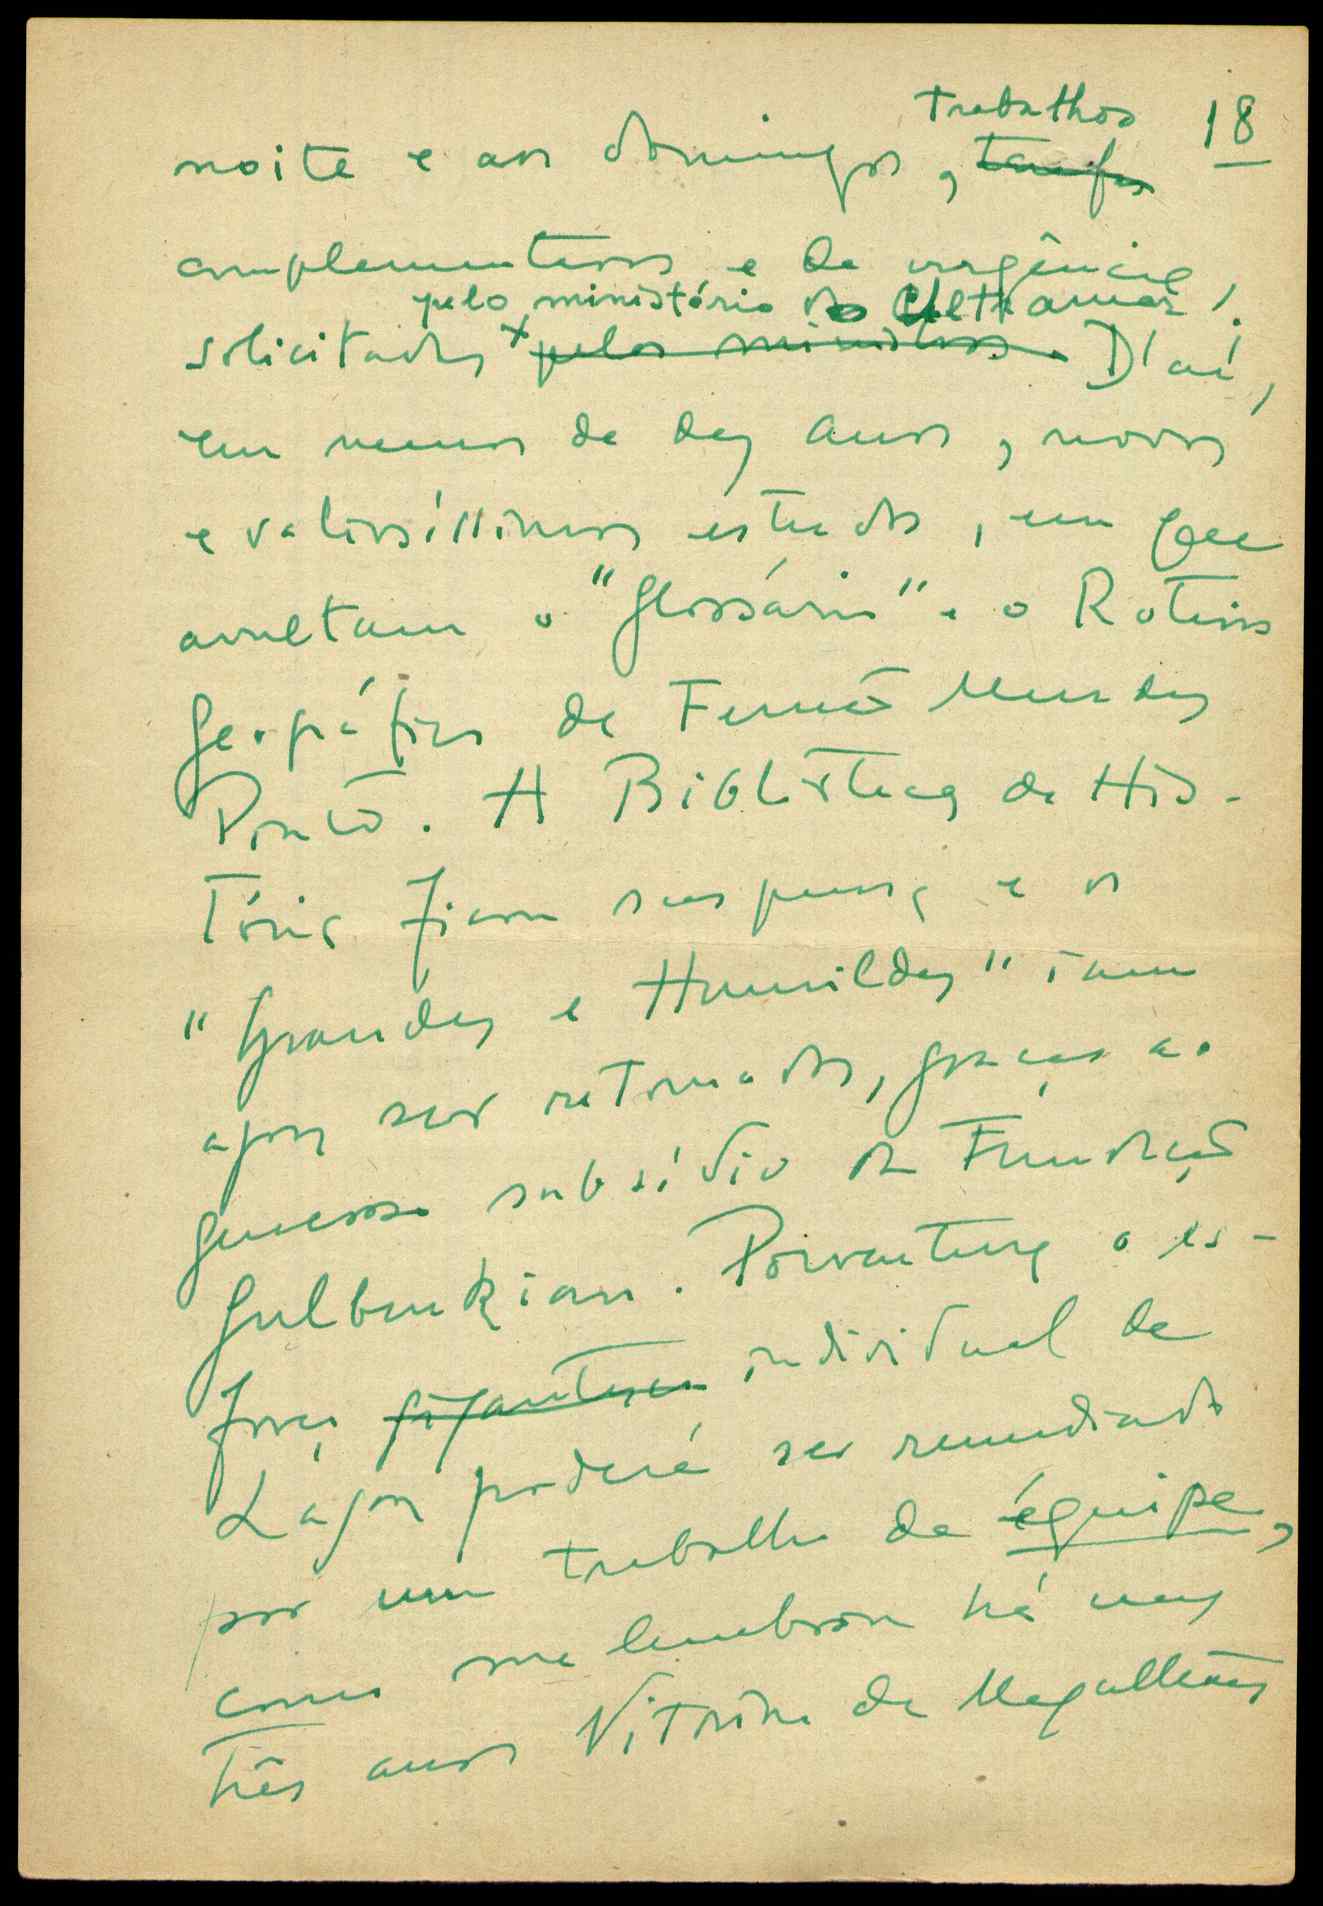 18
trabalhos
noite e aos domingos, tarefas
complementares e de urgência,
pelo ministério do Ultramar.
solicitados pelos ministros. D'aí,
em menos de dez anos, novos
e valiosíssimos estudos, em que
avultam o "Glossário" e o Roteiro
geográfico de Fernão Mendes
Pinto. A Biblioteca da His-
tória ficou suspensa e os
"Grandes e Humildes" iam
agora ser retomados, graças ao
generoso subsídio da Fundação
Gulbenkian. Porventura o es-
forço gigantesco individual de
Lagoa poderá ser remediado
por um trabalho de équipe,
como me lembrou há uns
três anos Vitorino de Magalhães